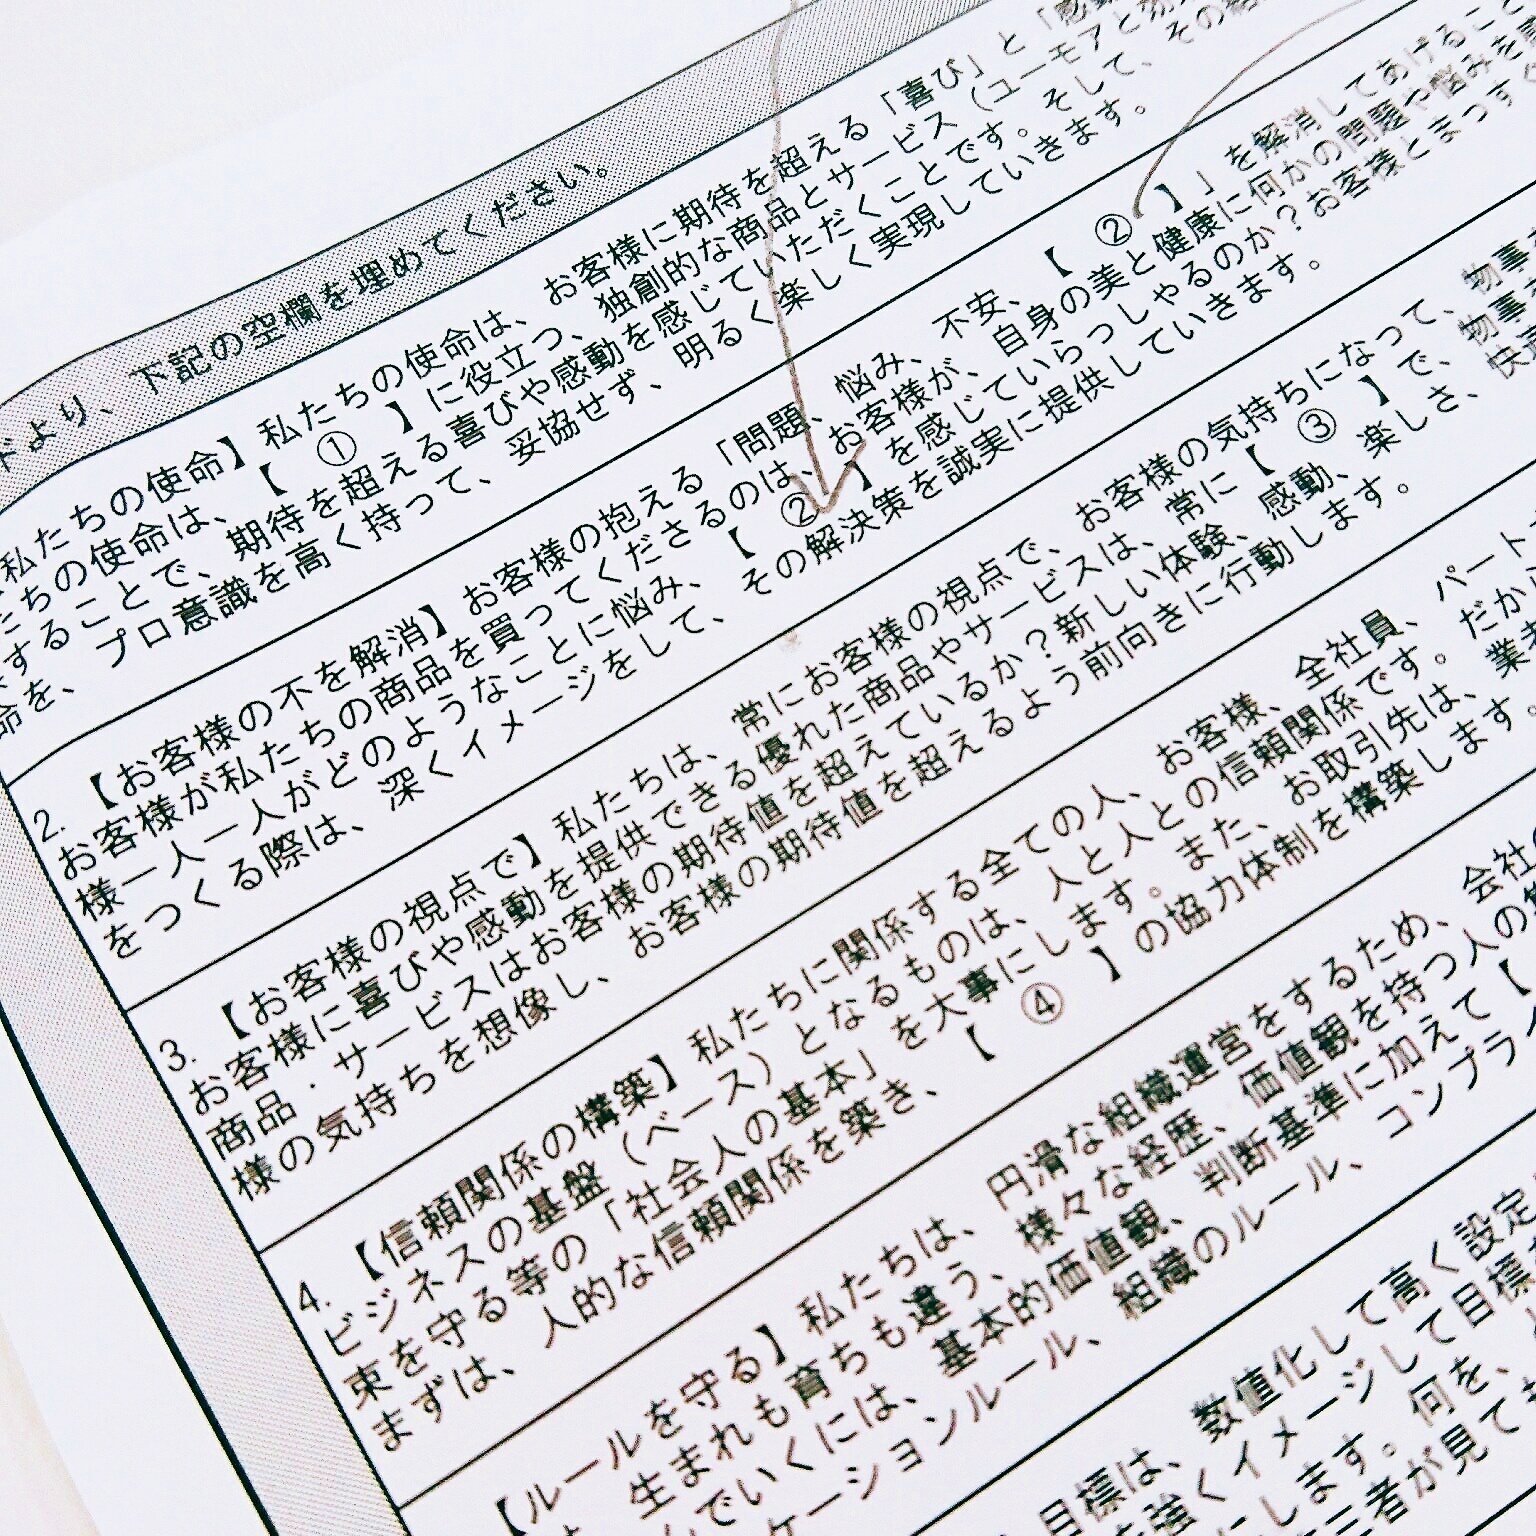 ドより、下記の空欄を埋めてください。
私たちの使命】私たちの使命は、お客様に期待を超える「喜び」と「感動
たちの使命は、【 ① 】に役立つ、独創的な商品とサービス（ユーモアと
することで、期待を超える喜びや感動を感じていただくことです。そして、その
命を、プロ意識を高く持って、妥協せず、明るく楽しく実現していきます。
2. 【お客様の不を解消】お客様の抱える「問題、悩み、不安、【 ② 】」を解消してあげること
お客様が私たちの商品を買ってくださるのは、お客様が、自身の美と健康に何かの問題や悩みを
様一人一人がどのようなことに悩み、【 ② 】を感じていらっしゃるのか？お客様とまっすぐ
をつくる際は、深くイメージをして、その解決策を誠実に提供していきます。
3. 【お客様の視点で】私たちは、常にお客様の視点で、お客様の気持ちになって、物事
お客様に喜びや感動を提供できる優れた商品やサービスは、常に【 ③ 】で、物事
商品・サービスはお客様の期待値を超えているか？新しい体験、感動、楽しさ、快
様の気持ちを想像し、お客様の期待値を超えるよう前向きに行動します。
4. 【信頼関係の構築】私たちに関係する全ての人、お客様、全社員、パート
ビジネスの基盤（ベース）となるものは、人と人との信頼関係です。だから
束を守る等の「社会人の基本」を大事にします。また、お取引先は、業者
まずは、人的な信頼関係を築き、【 ④ 】の協力体制を構築します。
【ルールを守る】私たちは、円滑な組織運営をするため、会社
生まれも育ちも違う、様々な経歴、価値観を持つ人の
でいくには、基本的価値観、判断基準に加えて【
ケーションルール、組織のルール、コンプライ
目標は、数値化して高く設定
を強くイメージして目標
にします。何を、
三者が見ても